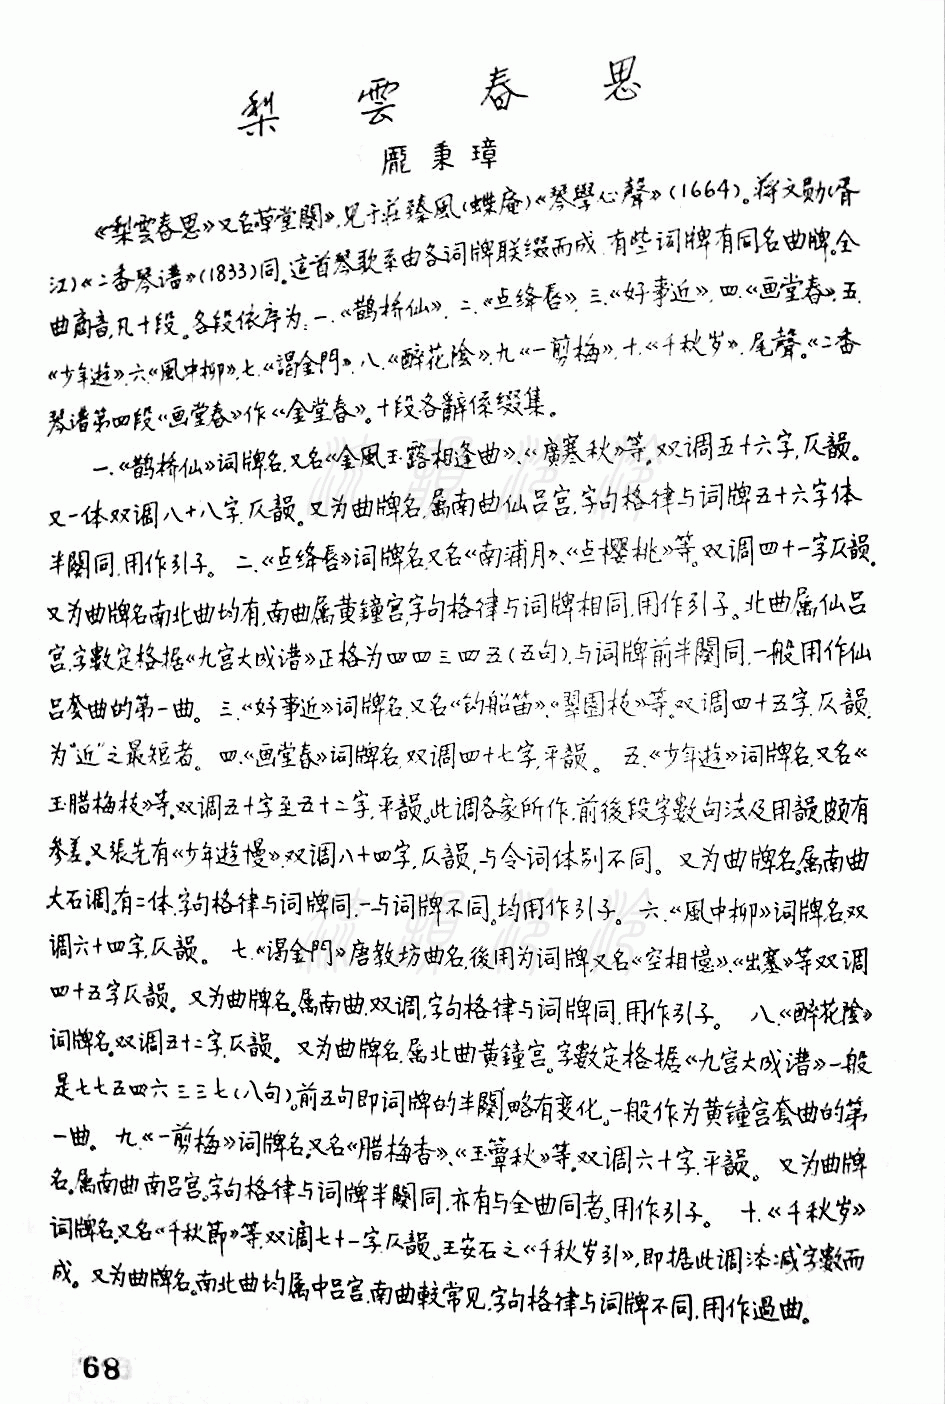 梨雲春思
龎秉璋
《梨雲春思》又名《草堂闋》,見于莊臻風(蝶庵)《琴學心聲》(1664)。蒋文勋(胥
江)《二香琴谱》(1833)同。這首琴歌系由各词牌联缀而成,有些词牌有同名曲牌。全
曲商音,凡十段。各段依序为:一.《鹊桥仙》.二.《点绛唇》.三.《好事近》.四.《画堂春》.五.
《少年遊》.六.《風中柳》.七.《謁金門》.八.《醉花陰》.九.《一剪梅》.十.《千秋岁》.尾聲。《二香
琴谱第四段《画堂春》作《金堂春》。十段各辭係缀集。
一.《鹊桥仙》词牌名,又名《金風玉露相逢曲》、《廣寒秋》等。双调五十六字,仄韻。
又一体双调八十八字,仄韻。又为曲牌名,属南曲仙吕宫,字句格律与词牌五十六字体
半闋同,用作引子。 二.《点绛唇》词牌名,又名《南浦月》、《点樱桃》等。双调四十一字仄韻。
又为曲牌名南北曲均有,南曲属黄鐘宫,字句格律与词牌相同,用作引子。北曲属仙吕
宫,字數定格据《九宫大成谱》正格为四四三四五(五句),与词牌前半闋同,一般用作仙
吕套曲的第一曲。 三.《好事近》词牌名,又名《钓船笛》、《翠圆枝》等。双调四十五字,仄韻,
为"近"之最短者。 四.《画堂春》词牌名,双调四十七字,平韻。 五.《少年遊》词牌名,又名《
玉腊梅枝》等,双调五十字至五十二字,平韻。此调各家所作,前後段字數句法及用韻,颇有
参差。又張先有《少年遊慢》双调八十四字,仄韻,与令词体别不同。 又为曲牌名。属南曲
大石调。有二体,字句格律与词牌同,一与词牌不同。均用作引子。 六.《風中柳》词牌名,双
调六十四字,仄韻。 七.《謁金門》唐教坊曲名,後用为词牌,又名《空相憶》、《出塞》等双调
四十五字仄韻。又为曲牌名。属南曲,双调,字句格律与词牌同,用作引子。 八.《醉花陰》
词牌名。双调五十二字,仄韻。 又为曲牌名,属北曲黄鐘宫。字數定格据《九宫大成谱》一般
是七七五四六三三七(八句)。前五句即词牌的半闋,略有变化。一般作为黄鐘宫套曲的第
一曲。 九.《一剪梅》词牌名,又名《腊梅香》、《玉簟秋》等。双调六十字,平韻。 又为曲牌
名。属南曲南吕宫。字句格律与词牌半闋同,亦有与全曲同者。用作引子。 十.《千秋岁》
词牌名,又名《千秋節》等,双调七十一字,仄韻。王安石之《千秋岁引》,即据此调添减字數而
成。又为曲牌名。南北曲均属中吕宫,南曲較常见,字句格律与词牌不同,用作過曲。
68